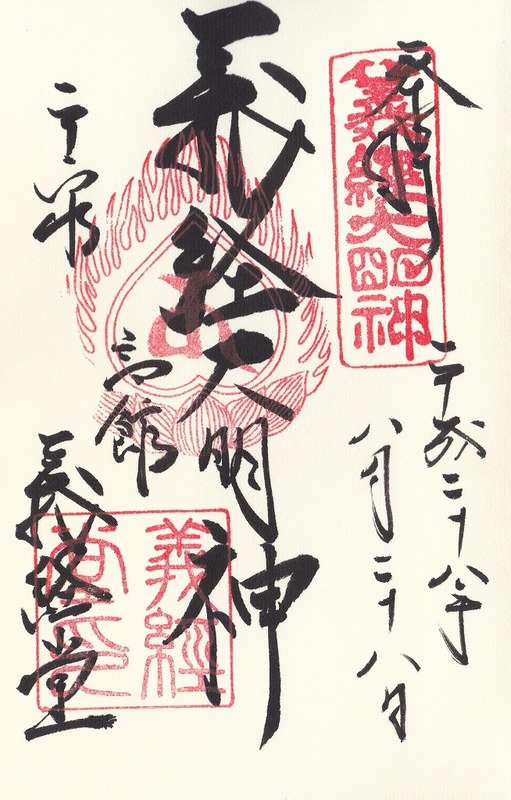 奉拝
義経大明神
平成二十八年
八月二十八日
義経大明神
高館
平泉
義経堂
義經
堂印